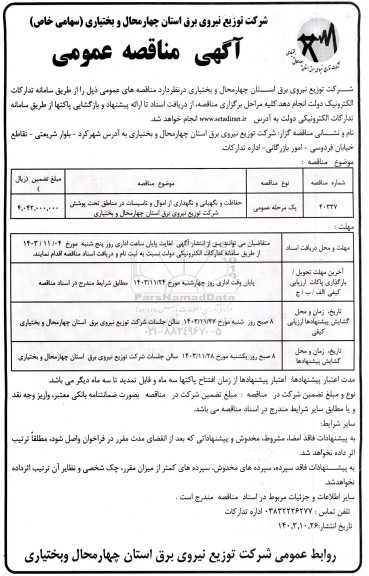 شرکت توزیع نیروی برق استان چهارمحال و بختیاری (سهامی خاص)
آگهی مناقصه عمومی
شرکت توزیع نیروی برق استان چهارمحال و بختیاری درنظردارد مناقصه های عمومی ذیل را از طریق سامانه تدارکات
الکترونیک دولت انجام دهد.کلیه مراحل برگزاری مناقصه، از دریافت اسناد تا ارائه پیشنهاد و بازگشایی پاکتها از طریق سامانه
تدارکات الکترونیکی دولت به آدرس www.setadiran.ir انجام خواهد شد.
نام و نشانی مناقصه گزار: شرکت توزیع نیروی برق استان چهارمحال و بختیاری به آدرس شهرکرد - بلوار شریعتی - تقاطع
خیابان فردوسی - امور بازرگانی- اداره تدارکات.
موضوع مناقصه :
شماره مناقصه نوع مناقصه موضوع مناقصه مبلغ تضمین (ریال)
۴۰۳۳۷ یک مرحله عمومی حفاظت و نگهبانی و نگهداری از اموال و تاسیسات در مناطق تحت پوشش شرکت توزیع نیروی برق استان چهارمحال و بختیاری ۴,۰۴۲,۰۰۰,۰۰۰
مهلت :
مهلت و محل دریافت اسناد متقاضیان می توانند پس از انتشار آگهی لغایت پایان ساعت اداری روز پنج شنبه مورخ ۱۴۰۳/۱۱/۰۴ از طریق سامانه تدارکات الکترونیکی دولت نسبت به ثبت نام و دریافت اسناد مناقصه اقدام نمایند.
آخرین مهلت تحویل / بارگذاری پاکات ارزیابی کیفی الف / ب / ج پایان وقت اداری روز چهارشنبه مورخ ۱۴۰۳/۱۱/۲۴ مطابق شرایط مندرج در اسناد مناقصه
تاریخ، زمان و محل گشایش پیشنهادها ارزیابی کیفی ۸ صبح روز شنبه مورخ ۱۴۰۳/۱۱/۲۷ سالن جلسات شرکت توزیع نیروی برق استان چهارمحال و بختیاری
تاریخ، زمان و محل گشایش پیشنهادها ۸ صبح روز یکشنبه مورخ ۱۴۰۳/۱۱/۲۸ سالن جلسات شرکت توزیع نیروی برق استان چهارمحال و بختیاری
ParsNamadData
۰۲۱-۸۸۳۴۹۶۷۰-۵
مدت اعتبار پیشنهادها: اعتبار پیشنهادها از زمان افتتاح پاکتها سه ماه و قابل تمدید تا سه ماه دیگر می باشد.
نوع و مبلغ تضمین شرکت در مناقصه : مبلغ تضمین شرکت در مناقصه بصورت ضمانتنامه بانکی معتبر، واریز وجه نقد
و یا مطابق سایر شرایط مندرج در اسناد مناقصه می باشد.
سایر شرایط:
به پیشنهادات فاقد امضا، مشروط، مخدوش و پیشنهاداتی که بعد از انقضای مدت مقرر در فراخوان واصل شود، مطلقاً ترتیب
اثر داده نخواهد شد.
به پیشنهادات فاقد سپرده، سپرده های مخدوش، سپرده های کمتر از میزان مقرر، چک شخصی و نظایر آن ترتیب اثرداده
نخواهدشد.
سایر اطلاعات و جزئیات مربوط در اسناد مناقصه مندرج است .
تلفن تماس : ۰۳۸۳۲۲۲۶۲۷۷ اداره تدارکات
تاریخ انتشار:۱۴۰۳,۱۰,۲۶
روابط عمومی شرکت توزیع نیروی برق استان چهارمحال وبختیاری